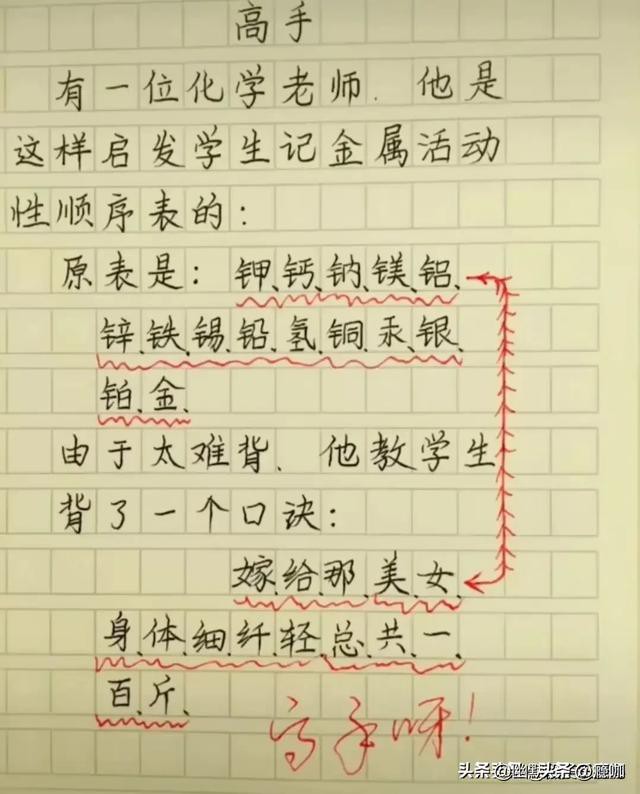 高手
有一位化学老师.他是
这样启发学生记金属活动
性顺序表的：
原表是：钾、钙、钠、镁、铝、
锌、铁、锡、铅、氢、铜、汞、银、
铂、金、
由于太难背、他教学生
背了一个口诀：
嫁、给、那、美、女、
身、体、细、纤、轻、总、共、一、
百、斤、
高手呀！